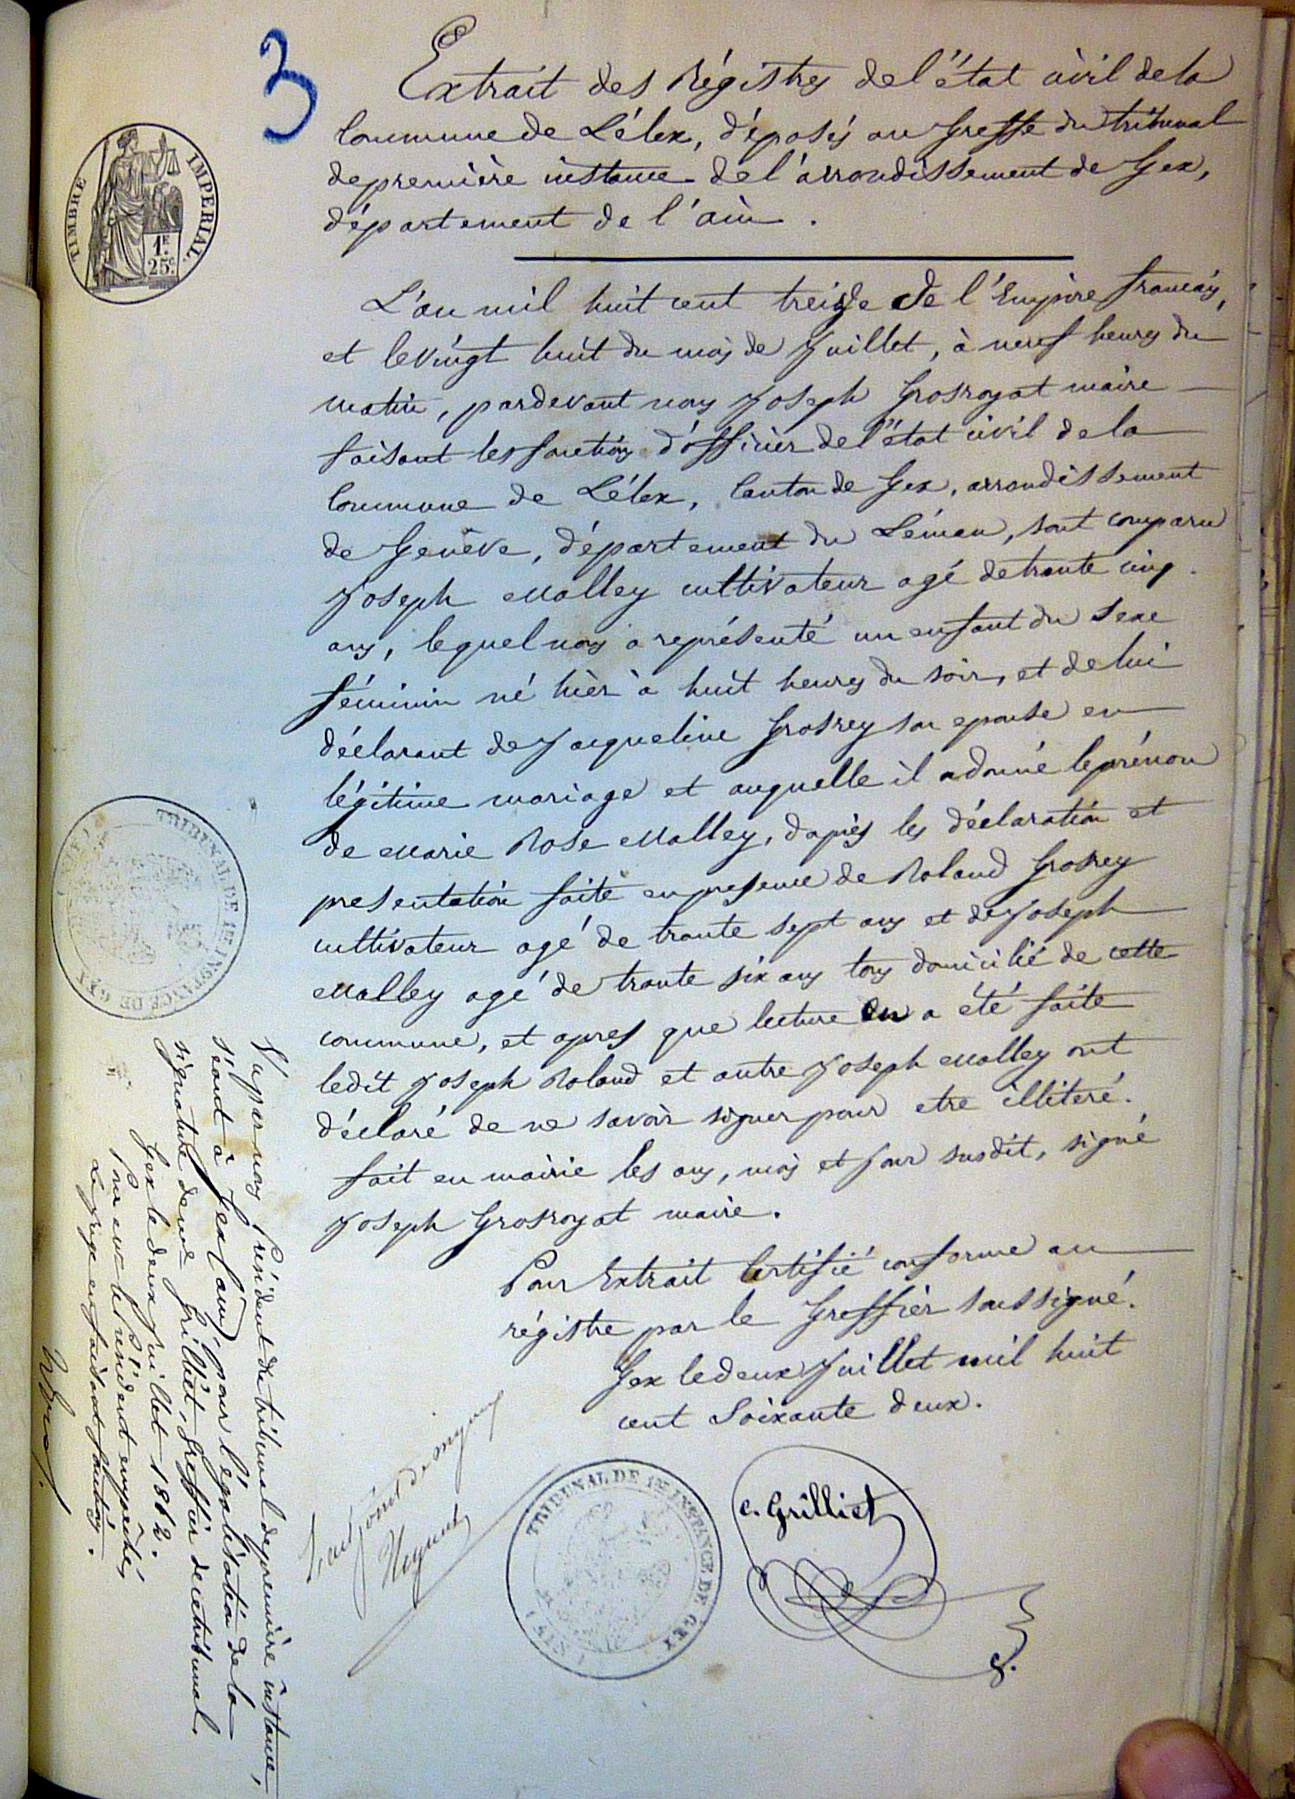 3
TIMBRE IMPERIAL.
1F.
25c.
Extrait des Régistres de l'état civil de la
Commune de Lélex, déposés au Greffe du tribunal
de première instance de l'arrondissement de Gex,
département de l'ain.
L'an mil huit cent treize de l'Empire français,
et le vingt huit du mois de Juillet, à neuf heures du
matin, pardevant nous Joseph Grosroyat maire
faisant les fonctions d'officier de l'état civil de la
Commune de Lélex, Canton de Gex, arrondissement
de Genève, département du Léman, sont comparu
Joseph Malley cultivateur agé de trante cinq
ans, lequel nous a représenté un enfant du sexe
féminin né hièr à huit heures du soir, et de lui
déclarant de Jacqueline Grosrey son epouse en
légitime mariage et auquelle il a donné le prénom
de Marie Rose Malley, d'après les déclaration et
presentation faite en presence de Roland Grosrey
cultivateur agé de trante sept ans et de Joseph
Malley agé de trante six ans tous domicilié de cette
commune, et apres que lecture en a été faite
ledit Joseph Roland et autre Joseph Malley ont
déclaré de ne savoir signer pour etre illiteré.
fait en mairie les ans, mois et jour susdit, signé
Joseph Grosroyat maire.
Pour Extrait Certifié conforme au
régistre par le Greffièr soussigné.
Gex le deux Juillet mil huit
cent soixante deux.
C. Grilliet
TRIBUNAL DE 1RE INSTANCE DE GEX
TRIBUNAL DE 1RE INSTANCE DE GEX
Vu par nous Président du tribunal de première instance,
séant à Gex (ain), pour légalisation de la
signature de me Grilliet, Greffier de ce tribunal.
Gex le deux Juillet 1862.
Pour le Président empêché,
Le Juge en faisant fonctions.